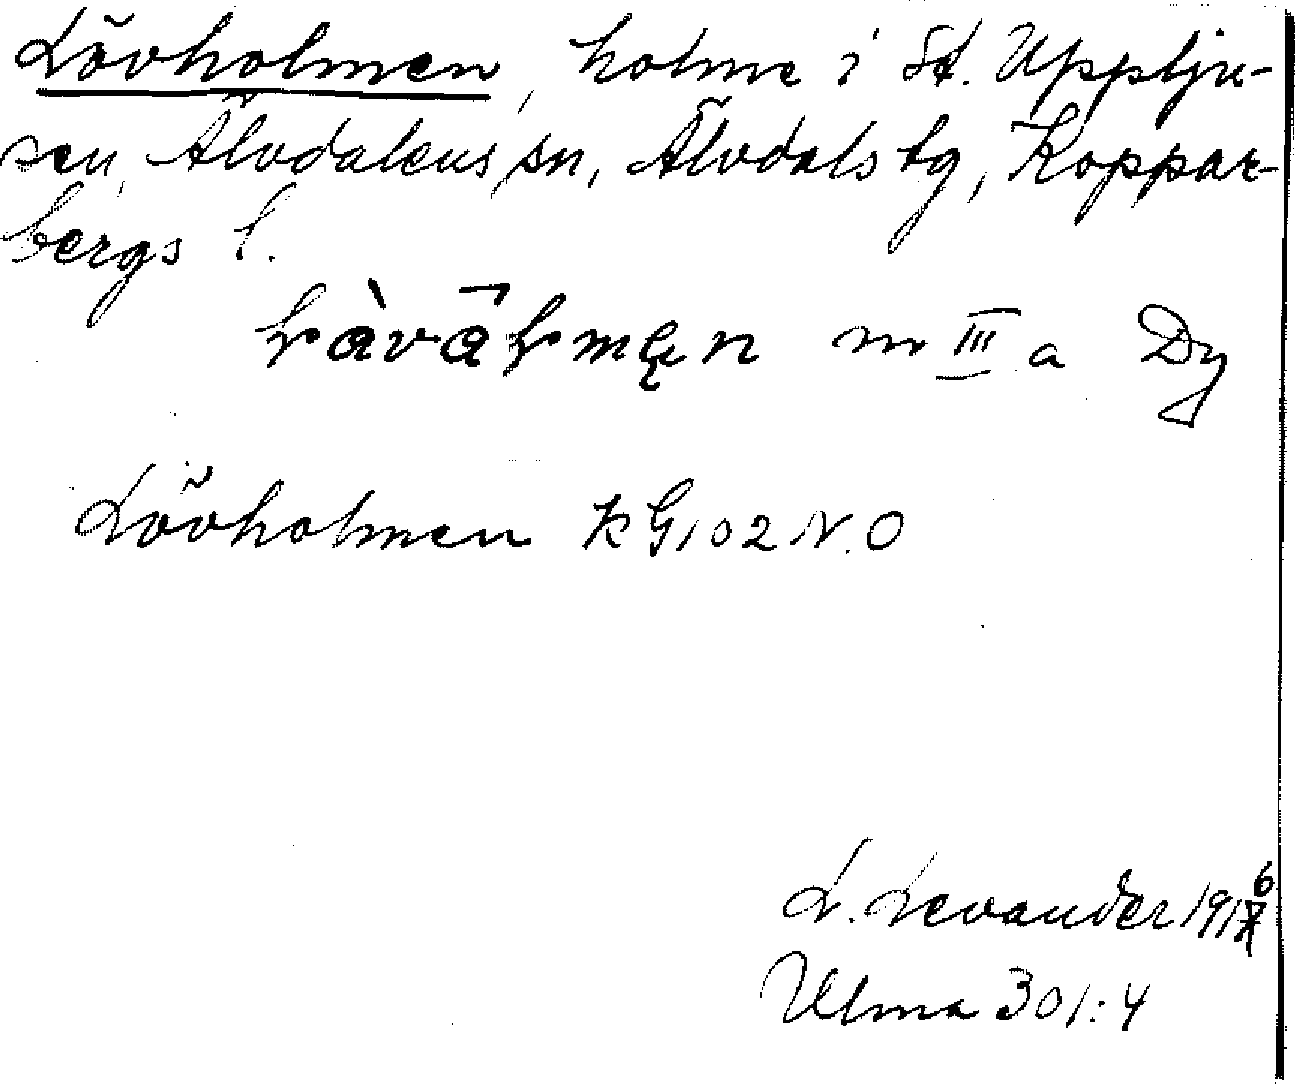 Lövholmen, holme i St. Upplju-
sen, Älvdalens sn, Älvdals tg, Koppar-
bergs l.
m III a Dy
Lövholmen KG102 N.O
L. Levander 1916
Ulma 301:4